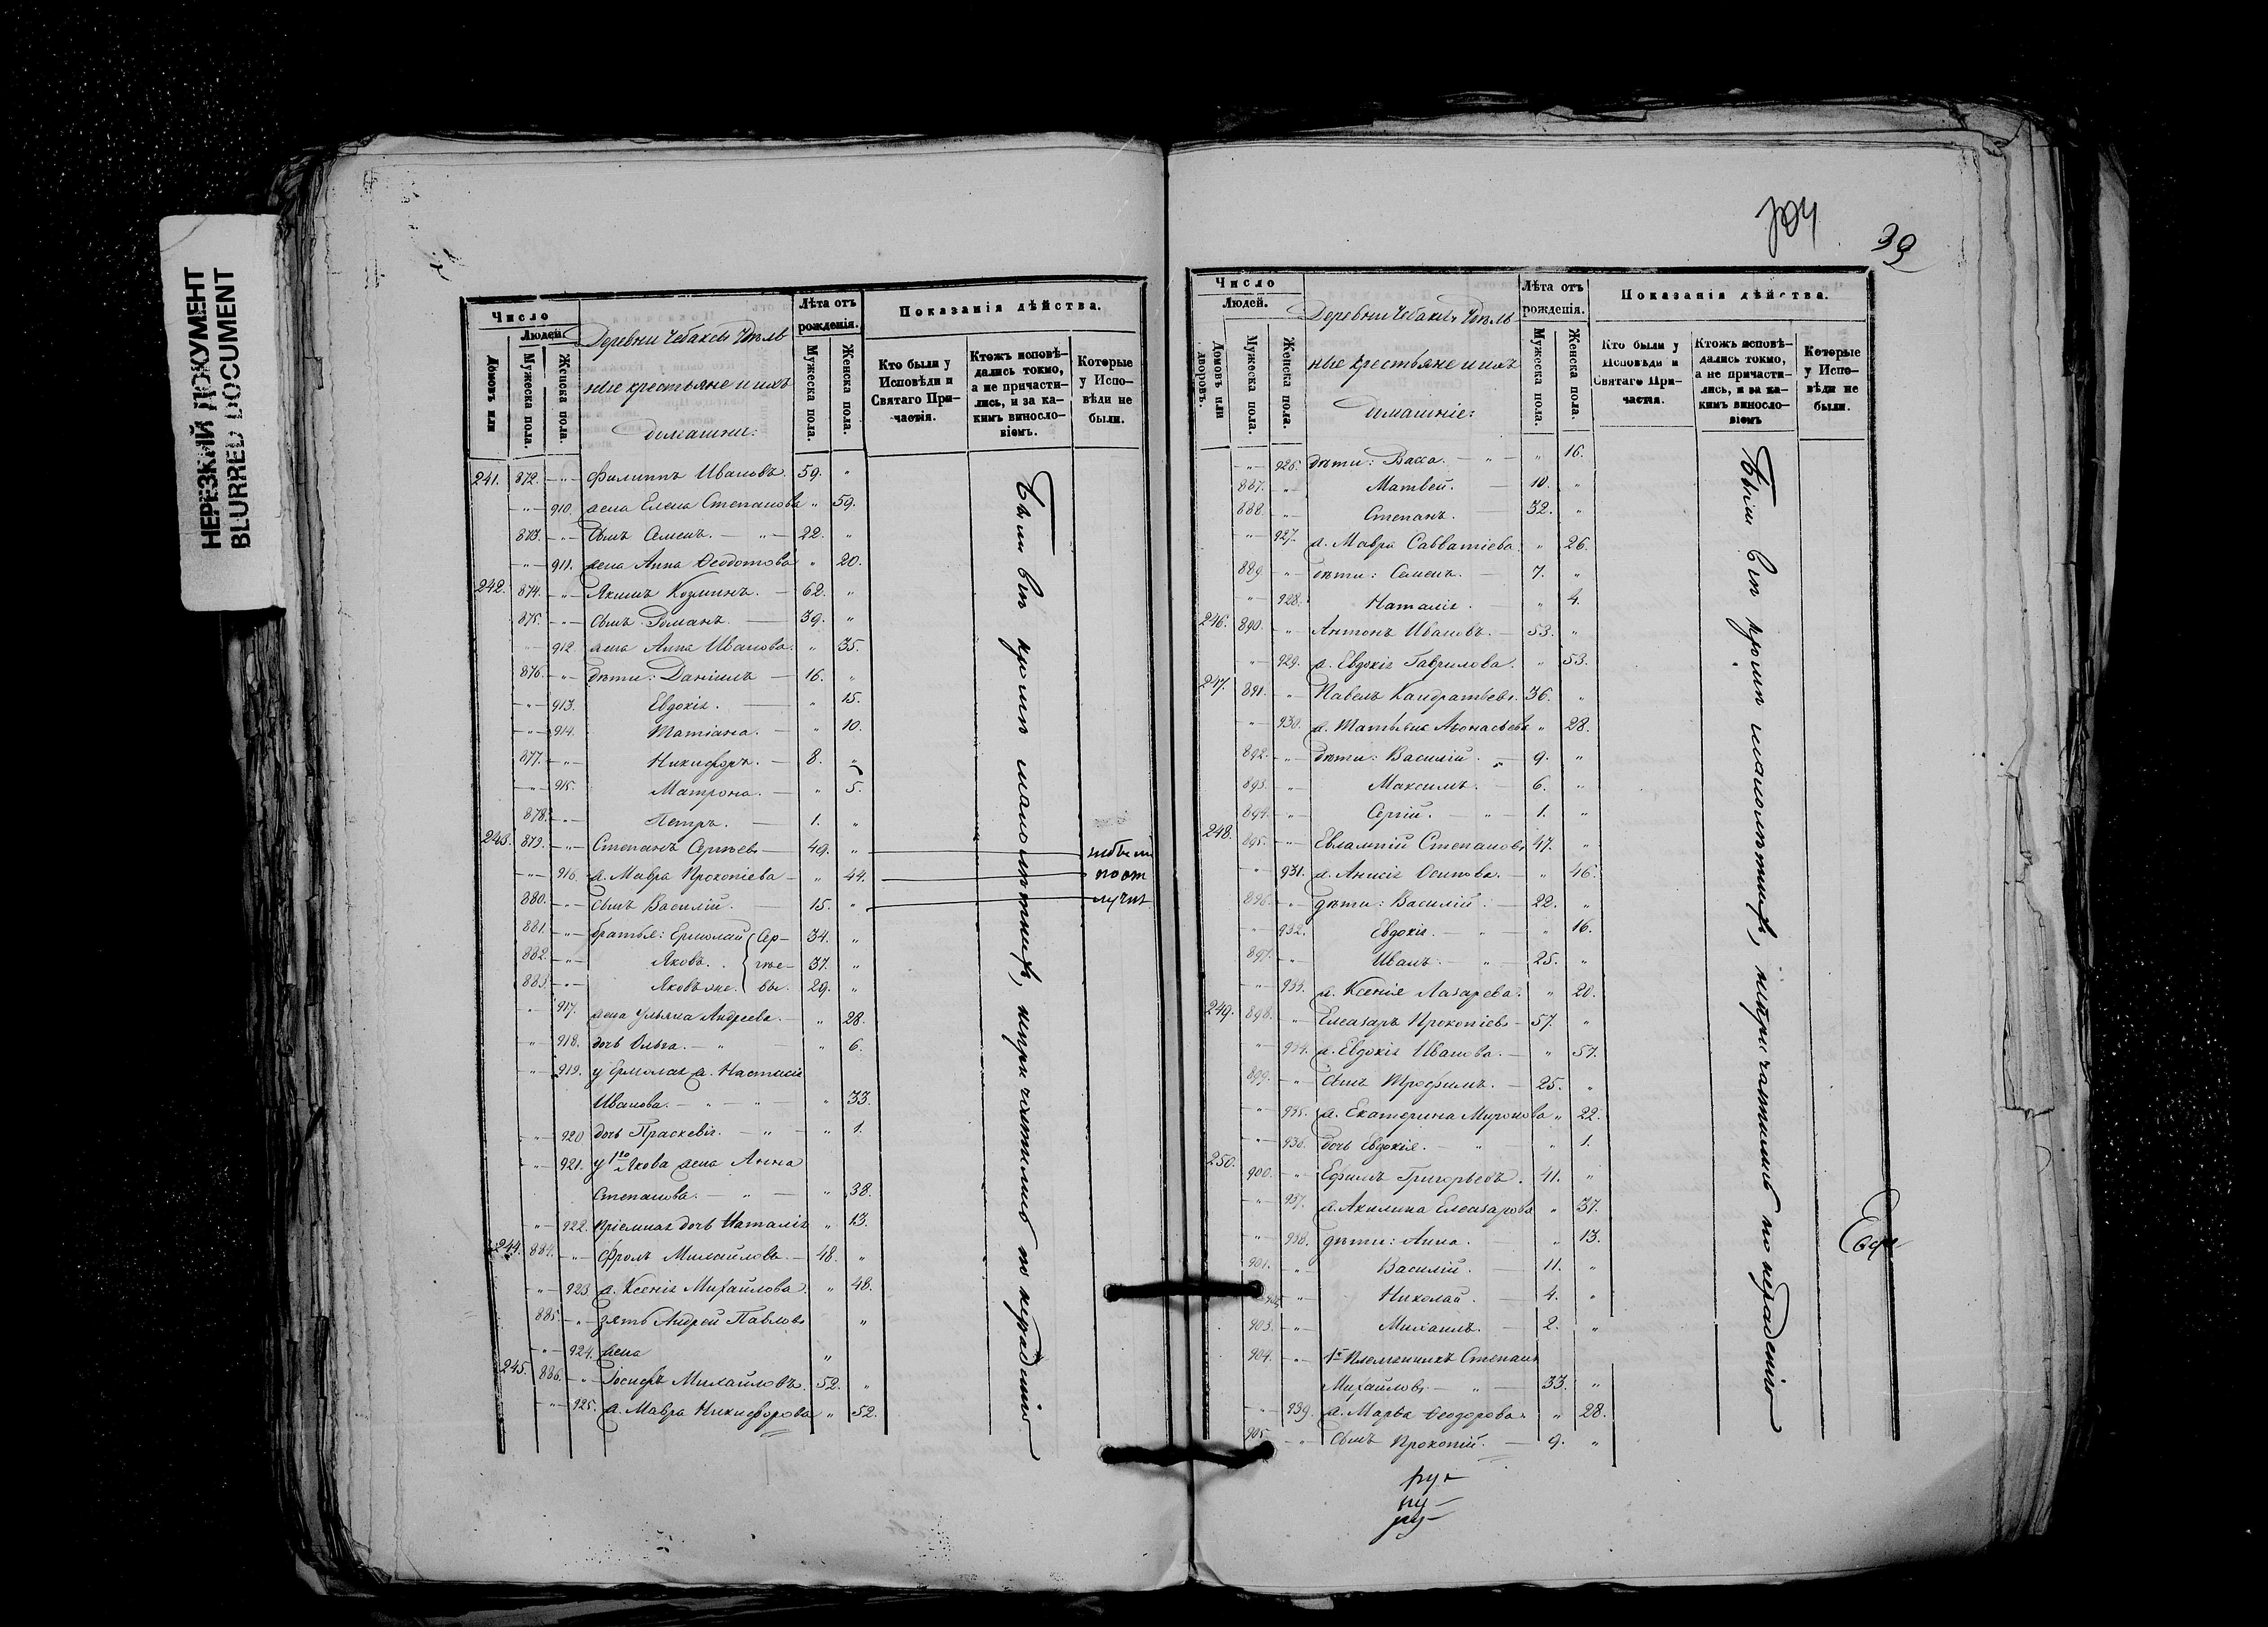 НЕРЕЗКИЙ ДОКУМЕНТ
BLURRED DOCUMENT
Число
Людей.
Домовъ или
Мужеска пола.
Женска пола.
Деревни Чебаксы Удѣль
ные крестьяне и ихъ
домашніе:
Лѣта отъ рожденія.
Мужеска пола.
Женска пола.
Показанія дѣйства.
Кто были у Исповѣди и Святаго Причастія.
Ктожъ исповѣдались токмо, а не причастились, и за какимъ винословіемъ.
Которые у Исповѣди не были.
241. 872. -"- Филиппъ Ивановъ. 59. "
-"- 910. жена Елена Степанова " 59.
873. -"- Сынъ Семенъ. — " — 22. "
-"- 911. жена Анна Ѳеодотова " 20.
242. 874. -"- Якимъ Козминъ. — 62. "
875. -"- Сынъ Романъ. — 39. "
-"- 912. жена Анна Иванова. " 35.
876. -"- дѣти: Даніилъ — 16. "
-"- 913. Евдокія. — " 15.
-"- 914. Татіана. — " 10.
877. -"- Никифоръ. — 8. "
-"- 915. Матрона. — " 5.
878. -"- Петръ. — 1. "
243. 879. -"- Степанъ Сергѣевъ — 49. " небыли
-"- 916. ж. Мавра Прокопіева — " 44. по от
880. -"- сынъ Василій. — 15. " лучкѣ
881. -"- братья: Ермолай (Сер- 34. "
882. -"- Яковъ. . { гѣе- 37. "
883. -"- Яковъ же. ( вы. 29. "
" 917. жена Ульяна Андреева. — " 28.
" 918. дочь Ольга. — " — " 6.
" 919. у Ермолая ж. Настасія
Иванова. — " — " — " 33.
-"- 920 дочь Праскевія. — " — " 1.
-"- 921. у 1го Якова жена Анна
Степанова. — " — " 38.
-"- 922. пріемная дочь Наталія " 13.
244. 884. -"- Фролъ Михайловъ. — 48. "
-"- 923. ж. Ксенія Михайлова. " 48.
885. -"- зять Андрей Павловъ "
-"- 924. жена "
245. 886. -"- Іосифъ Михайловъ. 52. "
-"- 925. ж. Мавра Никифорова " 52.
Были всѣ кромѣ малолѣтнихъ, непричастились по нерадѣнію
39
Число
Людей.
Домовъ или дворовъ.
Мужеска пола.
Женска пола.
Деревни Чебаксы Удѣль
ные крестьяне и ихъ
домашніе:
Лѣта отъ рожденія.
Мужеска пола.
Женска пола.
Показанія дѣйства.
Кто были у Исповѣди и Святаго Причастія.
Ктожъ исповѣдались токмо, а не причастились, и за какимъ винословіемъ
Которые у Исповѣди не были.
-"- 926. дѣти: Васса. — " — " 16.
887. " Матвей. — 10. "
888. -"- Степанъ. — 32. "
-"- 927. ж. Мавра Савватіева. " 26.
889. -"- дѣти: Семенъ. — 7. "
" 928. Наталія. — " 4.
246. 890. " Антонъ Ивановъ. — 53. "
-"- 929. ж. Евдокія Гаврилова. " 53.
247. 891. -"- Павелъ Кандратьевъ. 36. "
-"- 930. ж. Татьяна Аѳонасьева " 28.
892. -"- дѣти: Василій. " — 9. "
893. -"- Максимъ. — 6. "
894. -"- Сергій. — " — 1. "
248. 895. -"- Евлампій Степановъ 47. "
-"- 931. ж. Анисія Осипова. — " 46.
896. -"- дѣти: Василій. — 22. "
" 932. Евдокія. — " — " 16.
897. -"- Иванъ. — " — 25. "
-"- 933. ж. Ксенія Лазарева. " 20.
249. 898. " Елеазаръ Прокопіевъ — 57. "
-"- 934. ж. Евдокія Иванова. — " 57.
899. -"- Сынъ Трофимъ. — 25. "
-"- 935. ж. Екатерина Миронова " 22.
-"- 936. дочь Евдокія. — " — " 1.
250. 900. -"- Ефимъ Григорьевъ. 41. "
-"- 937. ж. Акилина Елеазарова " 37.
-"- 938. дѣти: Анна. — " 13.
901. -"- Василій. — 11. "
-"- Николай. — 4. "
903. -"- Михаилъ. — 2. "
904. -"- Племянникъ Степанъ
Михайловъ. — " — 33. "
-"- 939. ж. Марья Ѳеодорова. " 28.
905. -"- Сынъ Прокопій. — 9. "
Были всѣ кромѣ малолѣтнихъ, непричастились по нерадѣнію